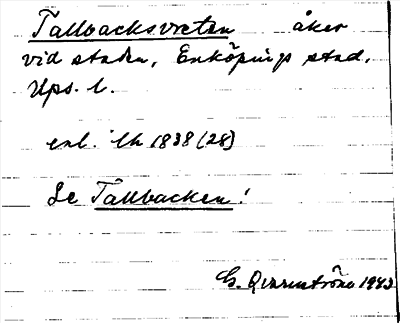 Tallbacksvreten åker
vid staden, Enköpings stad,
Ups. l.
enl. lh 1838 (28)
Se Tallbacken!
1943